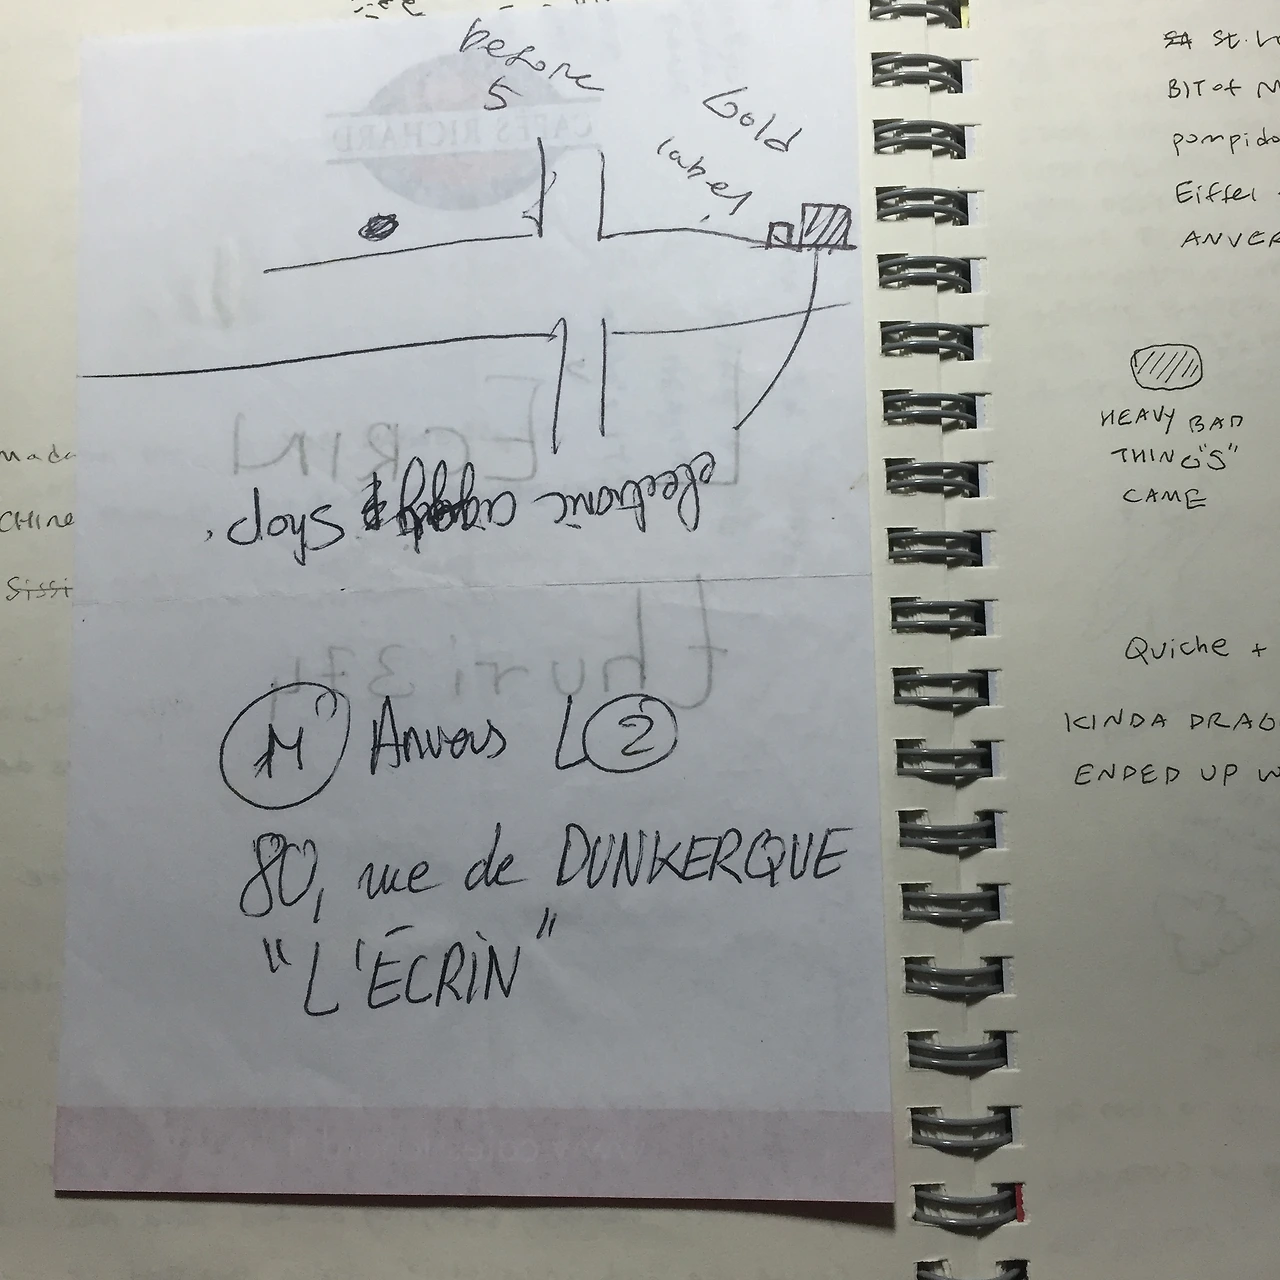 before
5
Gold
label
CAFÉS RICHARD
electronic cigg shop.
L'ECRIN
thuri37
M Anvers L 2
80, rue de DUNKERQUE
"L'ÉCRIN"
mada
CHine
Sissi
St. L
BIT of M
pompido
Eiffel
ANVER
HEAVY BAD
THING"S"
CAME
Quiche +
KINDA DRAG
ENDED UP W